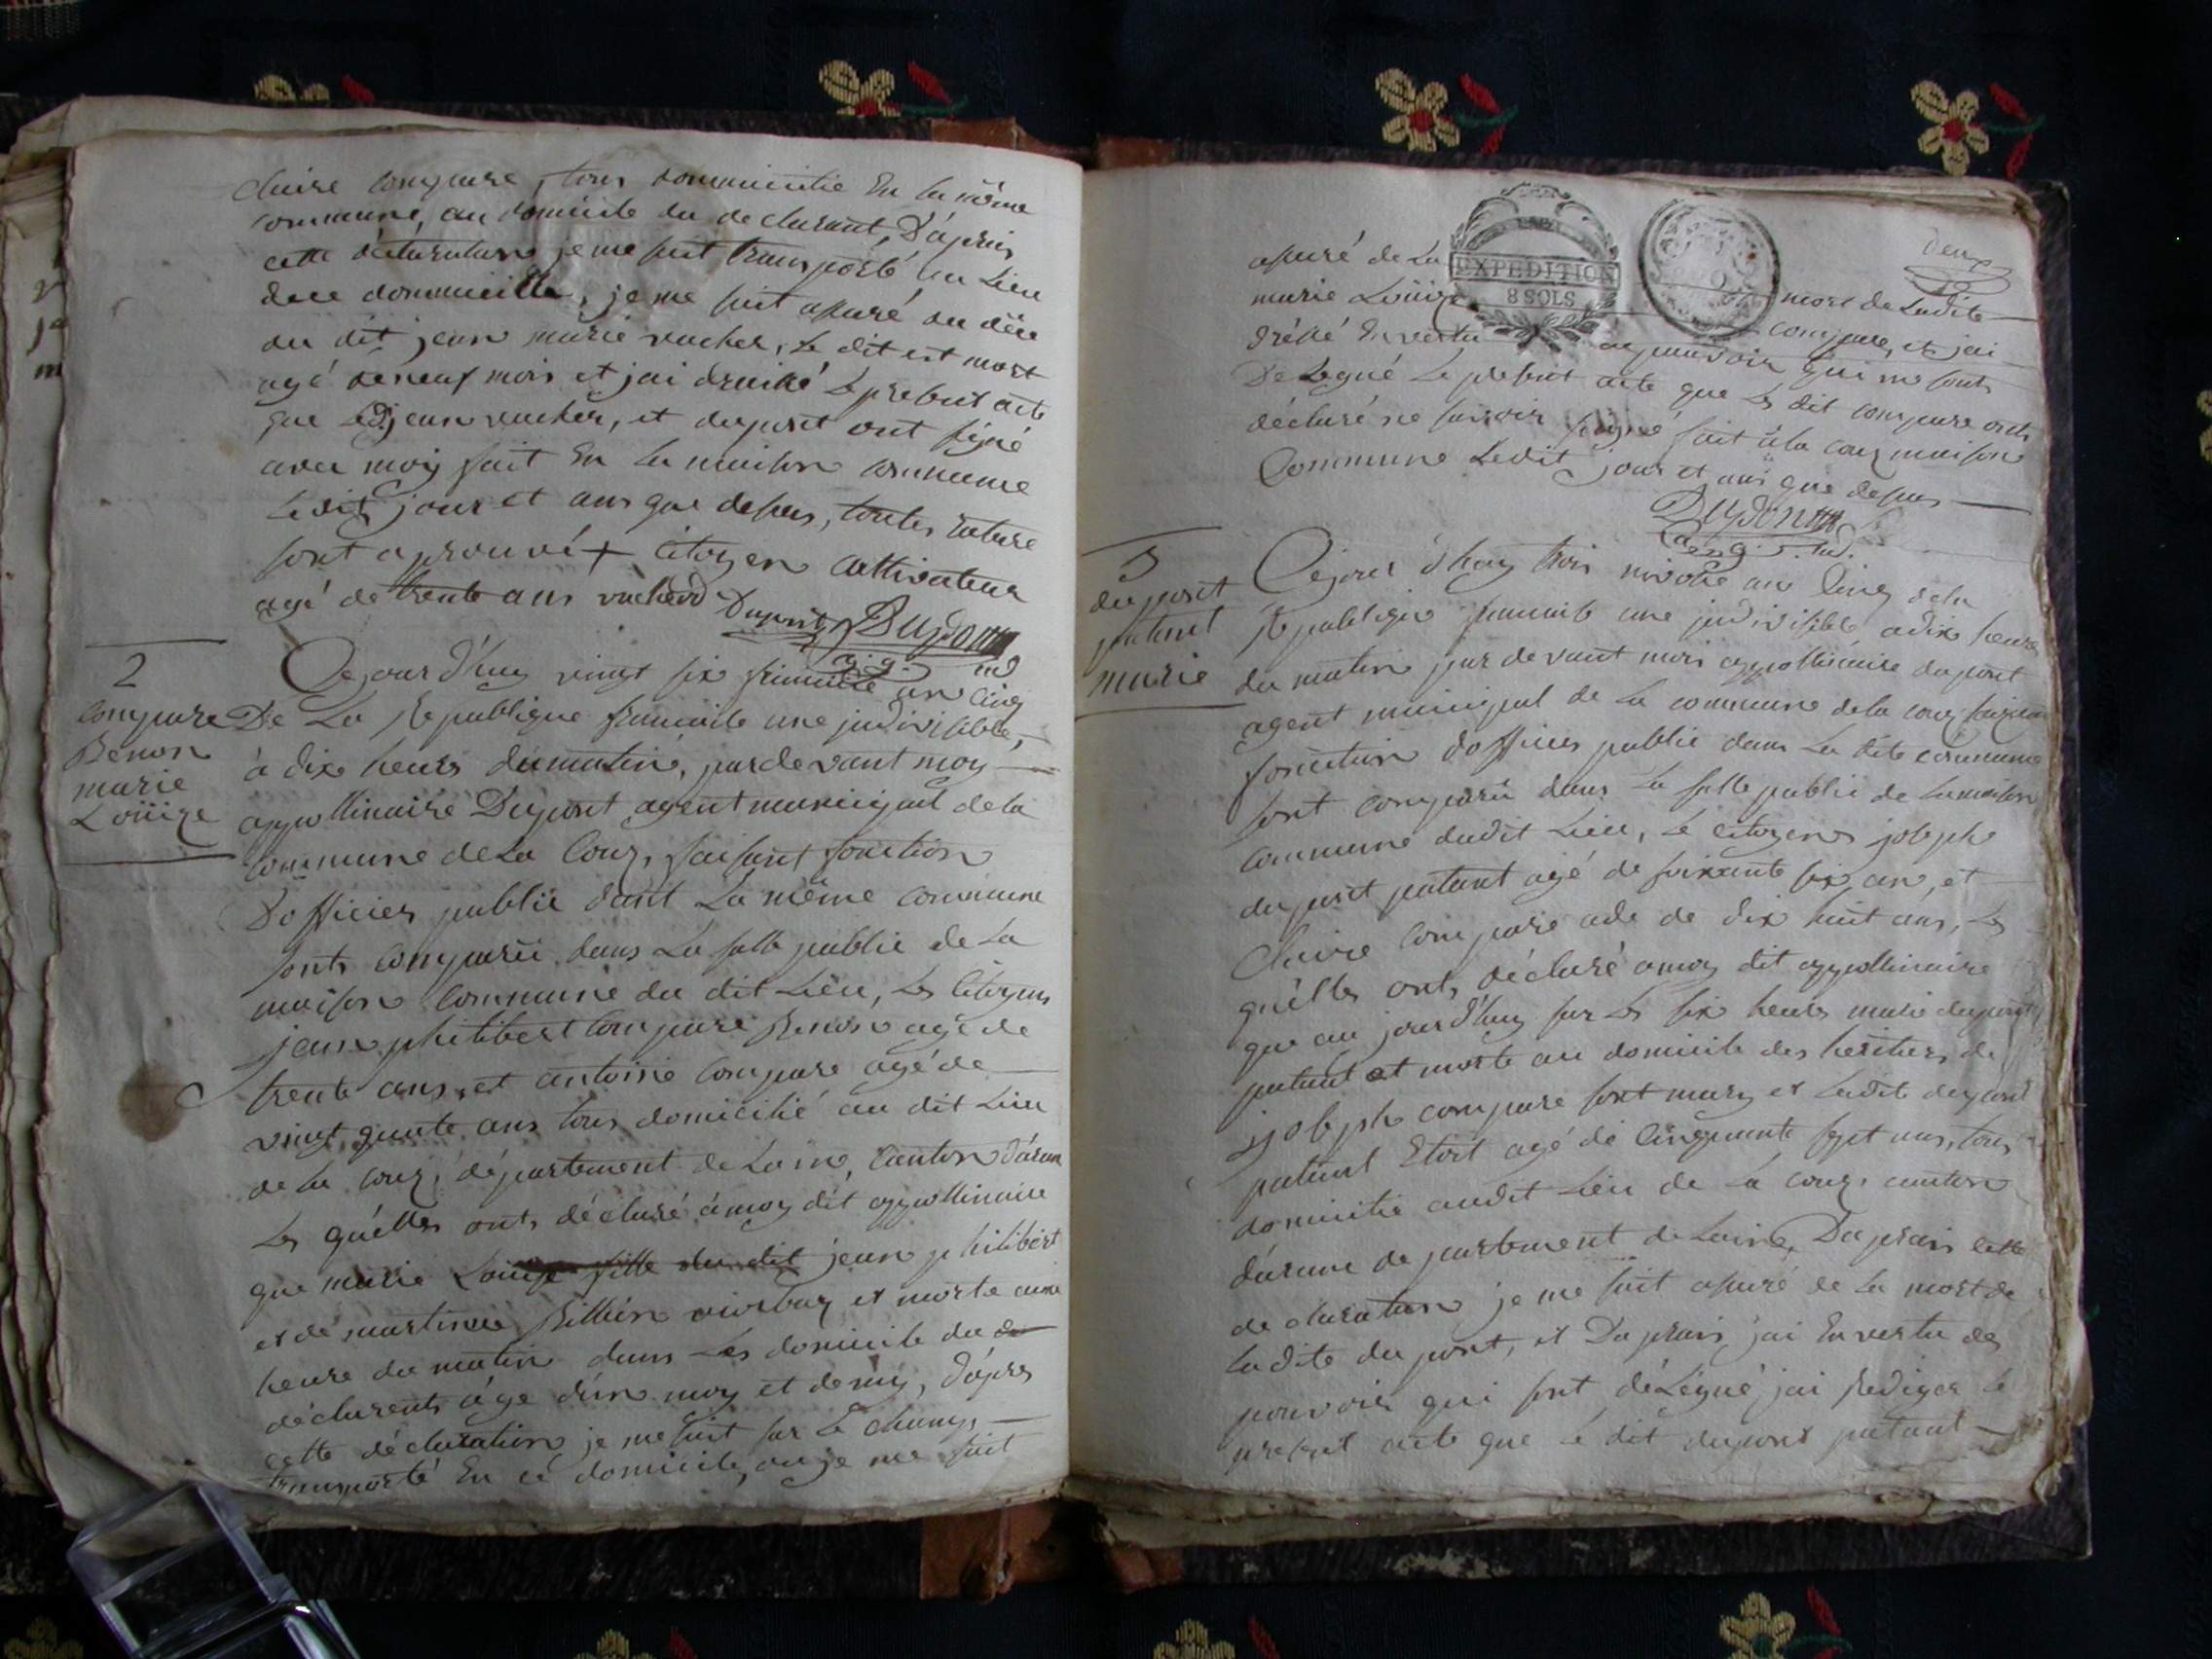 claire compare, tous dommicilie En la même
commune, au domicile du declarant, D'aprais
cette déclaration je me suit transporté au Lieu
dece dommicille, je me suit assuré du dece
du dit jean marie vucher, Le dit est mort
agé de neuf mois et jai dressé Le present acte
que Ledi jean vucher, et dupont ont signé
avec moy fait En la maison commune
Ledit jour et ans que desus, toutes
sont aprouvé + citoyen cultivateur
agé de trente ans vucherd Dupont Dupont
ag. md
2
compare
Benon
marie
Loüize
Cejourd'huy vingt six frimaire an cinq
De La Republique francaise une judivisible,
à dix heurs dumatin, pardevant moy
appollinaire Dupont agent municipal de la
commune deLa Couz, faisant fonction
Dofficier publie dant La même commune
sont comparü dans La salle publie de La
maison commune du dit Lieu, Les citoyens
jean philibert compare Benon agé de
trente ans, et antoine compare agé de
vingt quatre ans tous domicilié au dit Lieu
de la couz, département de Lain, canton d'aran
Les quélles ont déclaré à moy dit appollinaire
que marie Louise fille du dit jean philibert
et de martinne Billien et morte aune
heure du matin dans Les domicile du de
déclarent age d'un moy et demy, d'aprés
cette déclaration je me suit sur Le champs
transporté En cé domicile, ou je me suit
deux
EXPEDITION
8 SOLS
assuré de La mort de Ladite
marie Loüize compare, et jai
dréssé En vertu du pouvoir qui me sont
De Legué Le present acte que Les dit compare onts
déclaré ne savoir signé fait à la couz maison
Commune Ledit jour et ans que desus
Dupont
ag. md.
3
dupont
patant
marie
Cejourd'huy trois nivose an cinq dela
Republique francaise une judivisible, adix heure
du matin par devant moi appollinaire dupont
agent municipal de La commune dela couz faisant
fonction dofficier publie dans La dite commune
sont comparü dans La salle publie de Lamaison
commune dudit Lieu, Le citoyens joseph
dupont patant agé de soixante six an, et
Claire compare ade de dix huit ans, Les
quélles ont déclaré amoy dit appollinaire
que au jourd'huy sur Les six heurs marie dupont
patant et morte au domicile des heritiers de
joseph compare sont mary et Ladite dupont
patant Etoit agé de cinquante sept ans, tous
domicilié audit Lieu de La couz, canton
d'arane departement de Lain, Da prais cette
declaration je me suit assuré de La mort de
Ladite dupont, et Da prais jai En vertu des
pouvoir qui sont déLégué jai Rediger Le
present acte que Le dit dupont patant